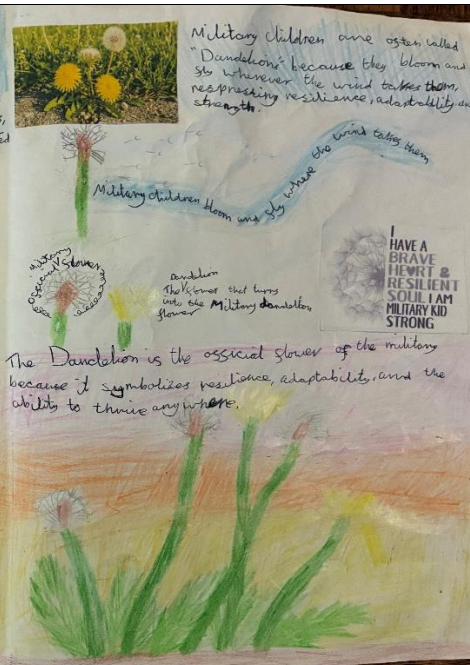 Military children are often called
"Dandelions" because they bloom and
fly wherever the wind takes them,
respressing resilience, adaptability
strength.
Military children bloom and fly where the wind takes them
Military
official flower
Dandelion
The flower that turns
into the Military dandelion
flower
I
HAVE A
BRAVE
HEART &
RESILIENT
SOUL I AM
MILITARY KID
STRONG
The Dandelion is the official flower of the military
because it symbolizes resilience, adaptability, and the
ability to thrive anywhere.